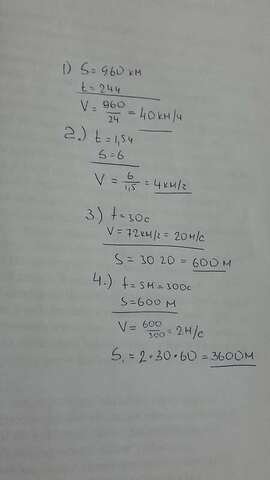 1) S = 960 км
t = 24ч
V = 960/24 = 40 км/ч
2.) t = 1,5ч
S = 6
V = 6/1,5 = 4км/г
3.) t = 30с
V = 72км/г = 20м/с
S = 30 20 = 600 м
4.) t = 5м = 300с
S = 600 м
V = 600/300 = 2м/с
S₁ = 2 • 30 • 60 = 3600м